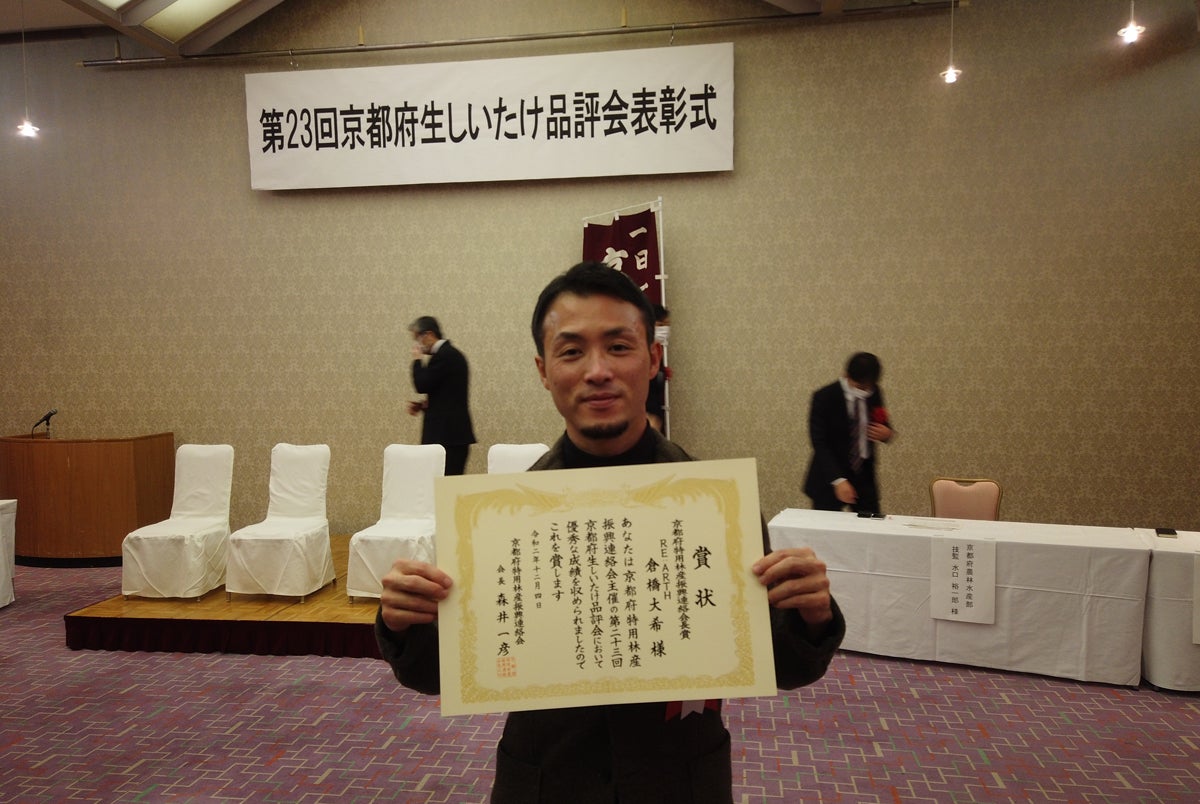 第23回京都府生しいたけ品評会表彰式
一日
賞状
京都府特用林産振興連絡会長賞
RE ARTH
倉橋大希 様
あなたは京都府特用林産
振興連絡会主催の第二十三回
京都府生しいたけ品評会において
優秀な成績を収められましたので
これを賞します
令和二年十二月四日
京都府特用林産振興連絡会
会長 森井一彦
京都府農林水産部
技監 水口 裕一郎 様